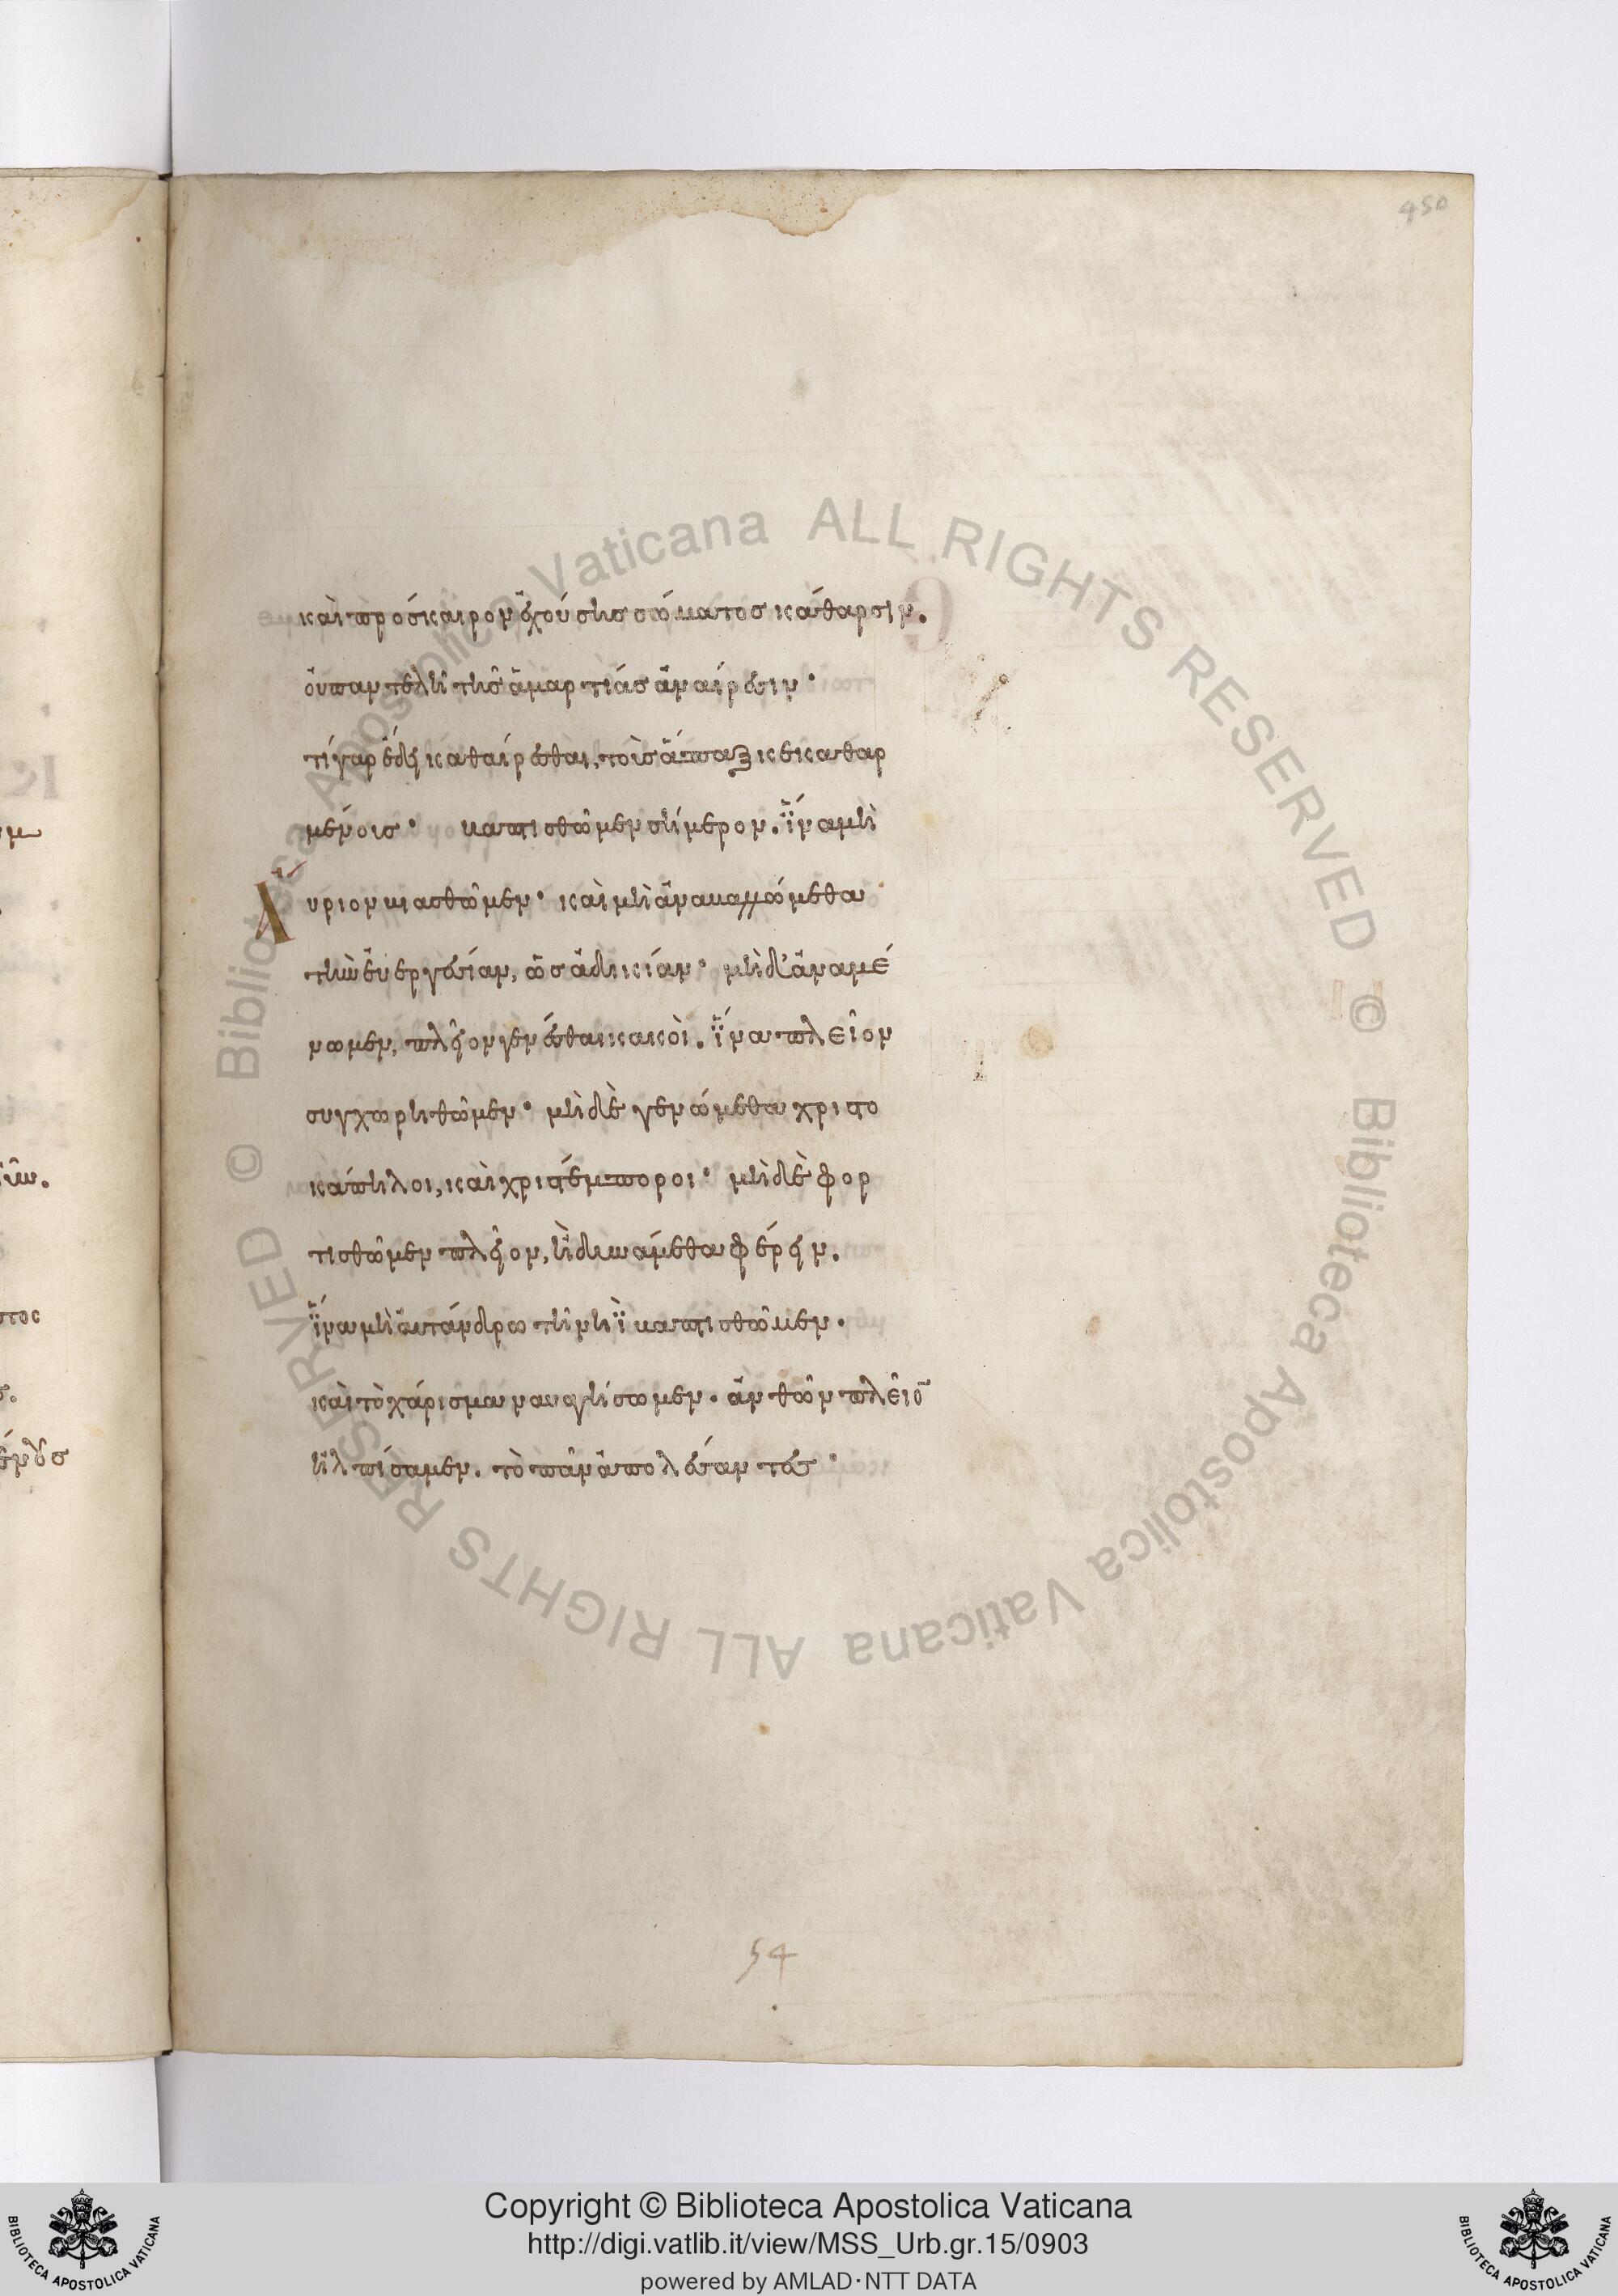 450
καὶ πρόσκαιρον ἐχούσης σώματος κάθαρσιν.
οὐ παντελῆ τῆς ἁμαρτίας ἀναίρεσιν·
τί γὰρ ἔδει καθαίρεσθαι, τοῖς ἅπαξ κεκαθαρ
μένοις· βαπτισθῶμεν σήμερον. ἵνα μὴ
Αὔριον βιασθῶμεν· καὶ μὴ ἀναβαλλώμεθα
τὴν εὐεργεσίαν, ὡς ἀδικίαν· μηδ' ἀναμέ
νωμεν, πλεῖον γενέσθαι κακοὶ. ἵνα πλεῖον
συγχωρηθῶμεν· μηδὲ γενώμεθα χριστο
κάπηλοι, καὶ χριστέμποροι· μηδὲ φορ
τισθῶμεν πλεῖον, ἢ δυνάμεθα φέρειν.
ἵνα μὴ αὐτάνδρω τῆ νηῒ βαπτισθῶμεν.
καὶ τὸ χάρισμα ναυαγήσωμεν. ἀνθ' ὧν πλεῖον
ἠλπίσαμεν. τὸ πᾶν ἀπολέσαντες·
54
Copyright © Biblioteca Apostolica Vaticana
http://digi.vatlib.it/view/MSS_Urb.gr.15/0903
powered by AMLAD·NTT DATA
BIBLIOTECA APOSTOLICA VATICANA
BIBLIOTECA APOSTOLICA VATICANA
© Biblioteca Apostolica Vaticana ALL RIGHTS RESERVED
© Biblioteca Apostolica Vaticana ALL RIGHTS RESERVED